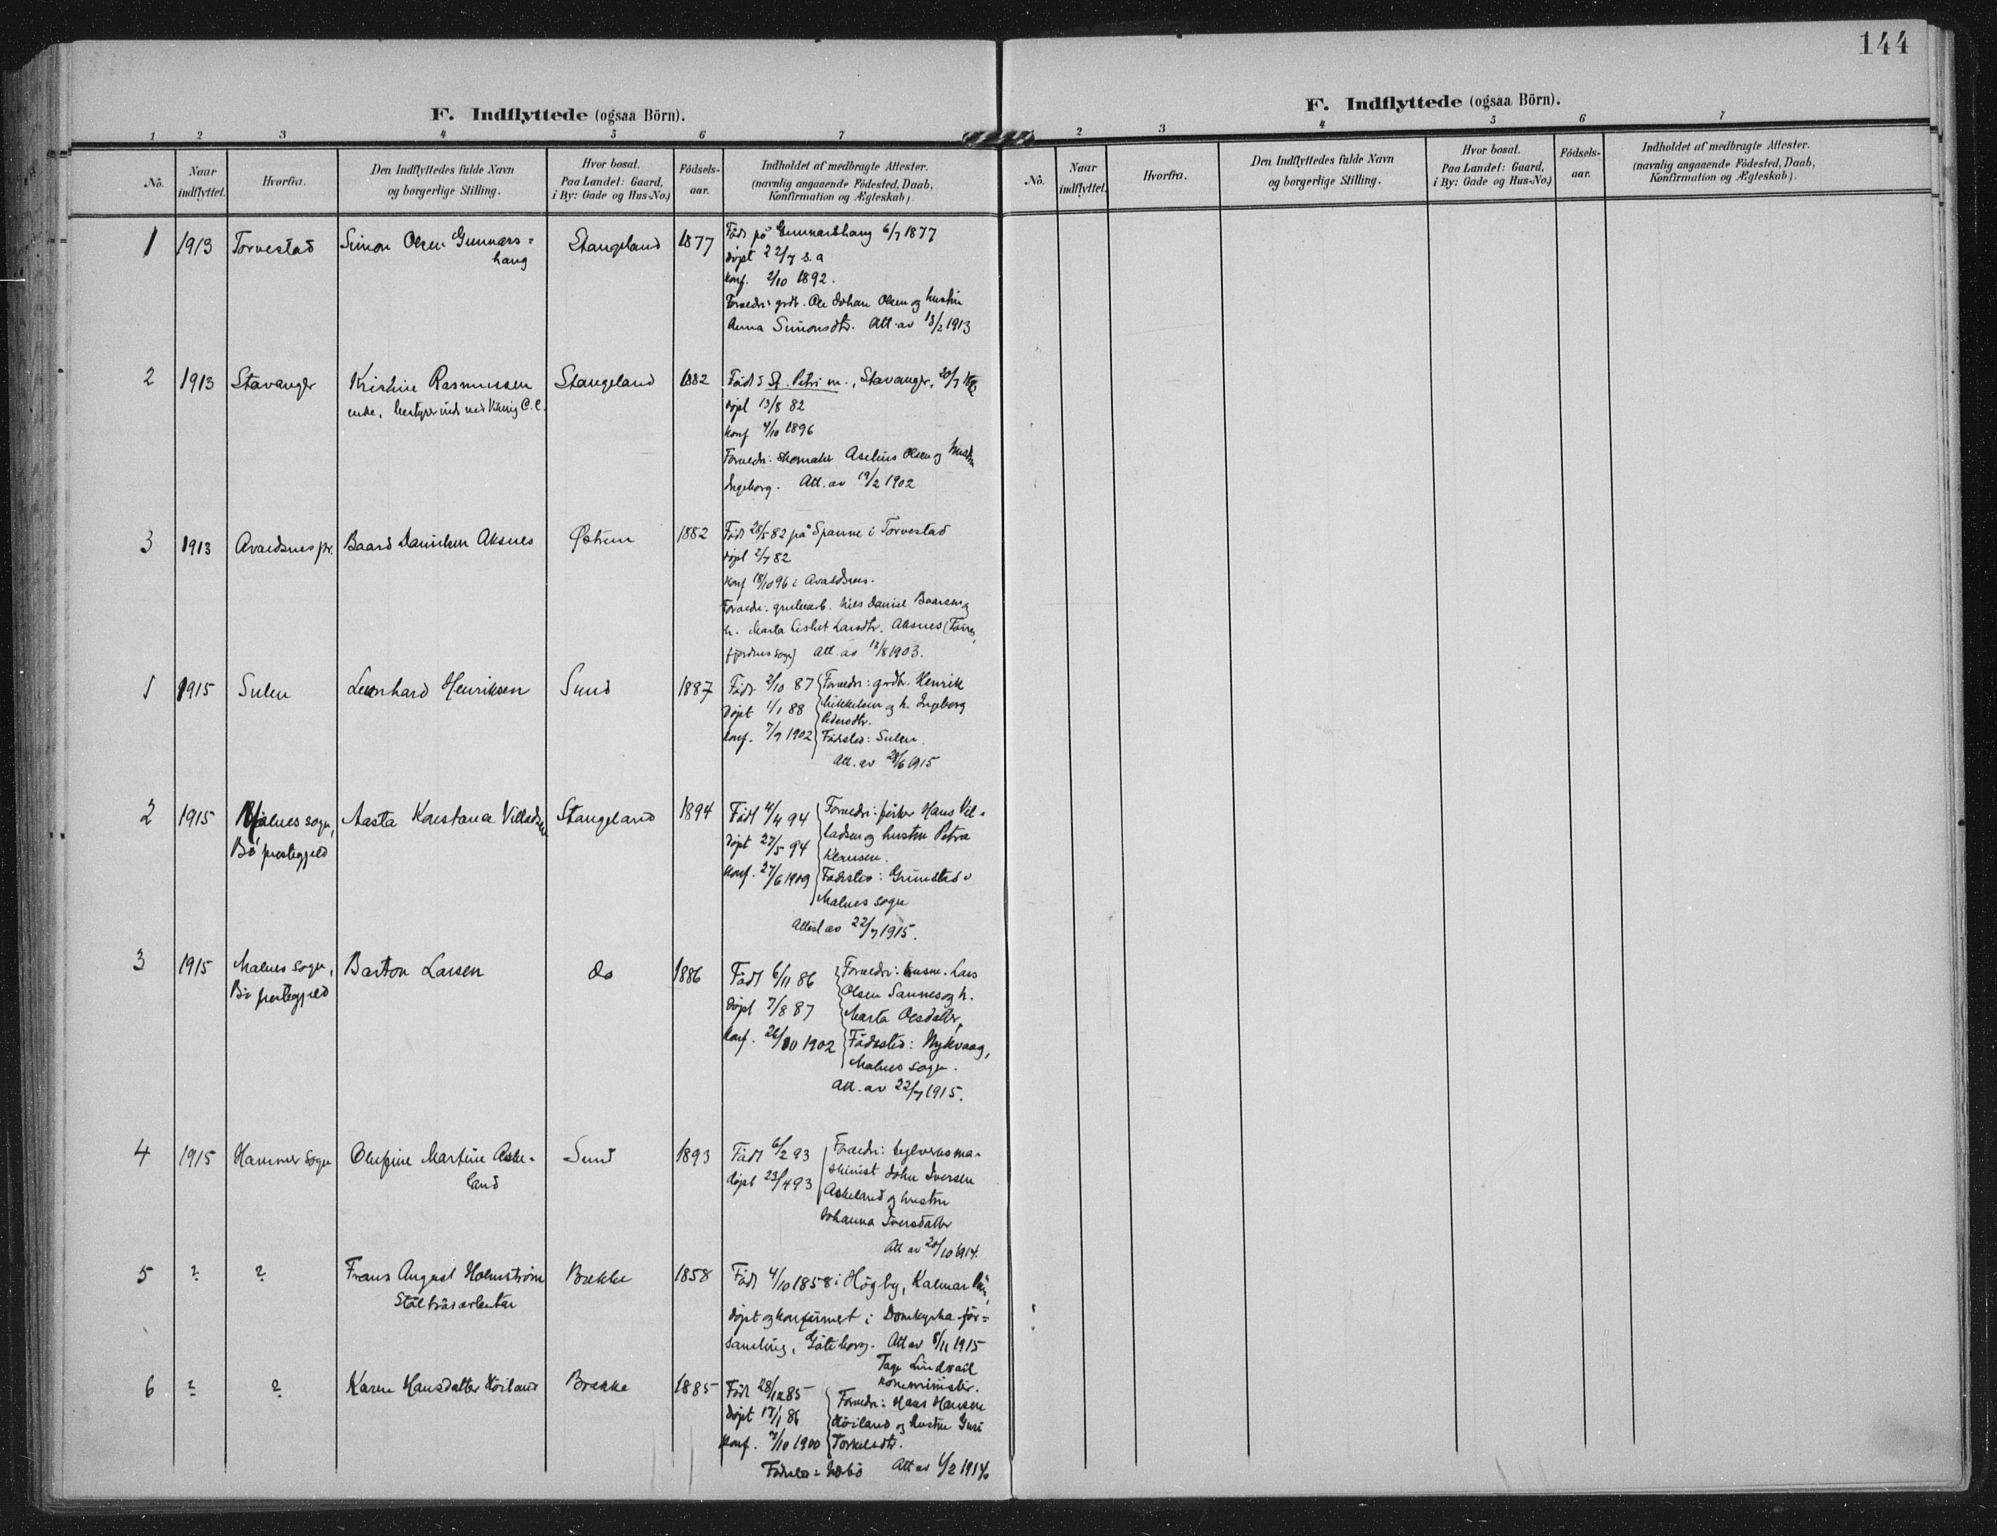 144
F. Indflyttede (ogsaa Börn).
1 2 3 4 5 6 7
No.
Naar indflyttet.
Hvorfra.
Den Indflyttedes fulde Navn og borgerlige Stilling.
Hvor bosat. Paa Landet: Gaard, i By: Gade og Hus-No.)
Fødsels-aar.
Indholdet af medbragte Attester. (navnlig angaaende Födested, Daab, Konfirmation og Ægteskab).
1 1913 Torvestad Simon Olsen Gunnars= Stangeland 1877 Född på Gunnarshaug 6/7 1877
haug
døpt 22/7 s.a
konf. 2/10 1892.
Foreldr: grdb. Ole Johan Olsen og hustru
Anna Simonsdtr. Att. av 13/2 1913
2 1913 Stavanger Kristine Rasmussen Stangeland 1882 Född i St. Petri m., Stavanger, 20/7
enke,
døpt 13/8 82
konf 4/10 1896
Foreldr: skomaker Olsen og hustru
Ingeborg. Att. av 19/2 1902
3 1913 Avaldsnes pr. Baard Danielsen Aksnes Østrem 1882 Född 28/5 82 på Spanne i Torvestad
døpt 2/7 82
konf 18/10 96 i Avaldsnes.
Foreldr: grubearb. Nils Daniel Baardsen og
h. Marta Larsdtr. Aksnes
Att. av 12/8 1903.
1 1915 Sulen Leonhard Henriksen Sund 1887 Född 2/10 87 Foreldr: grdb. Henrik
døpt 1/1 88 Mikkelsen og h. Ingeborg
Pedersdtr.
konf. 7/9 1902 Fødested: Sulen.
Att. av 28/6 1915
2 1915 Malnes sogn, Aasta Konstanse Villadsen Stangeland 1894 Född 4/4 94 Foreldr: fisker Hans Vil=
Bø prestegjeld
døpt 27/5 94 ladsen og hustru Petra
Klausen.
konf. 27/6 1909 Fødested: Grimstad i
Malnes sogn
Attest av 22/7 1915.
3 1915 Malnes sogn, Barton Larsen do 1886 Född 6/11 86 Foreldr: husm. Lars
Bø prestegjeld
Olsen Sannes og h.
døpt 7/8 87 Marta Olsdatter,
konf. 26/10 1902 Fødested: Nykvaag,
Malnes sogn.
Att. av 22/7 1915.
4 1915 Hammer sogn Olufine Martine Aske= Sund 1893 Född 6/2 93
land
døpt 23/4 93 skinist John Iversen
Askeland og hustru
Johanna Iversdatter
Att av 20/10 1914.
5 ? ? Frans August Holmström Brekke 1858 Född 4/10 1858 i Högby, Kalmar län,
Ståltrådarbeiter
døpt og konfirmet i Domkyrko för=
samling, Göteborg. Att av 8/11 1915
Tage Lindvall
komminister.
6 ? ? Karen Hansdatter Høiland Brekke 1885 Född 28/12 85 Foreldr: Hans Hansen
døpt 17/1 86 Høiland og hustru Guri
konf. 7/10 1900 Torkelsdtr.
Att av 1/2 1916
F. Indflyttede (ogsaa Börn).
2 3 4 5 6 7
No.
Naar indflyttet.
Hvorfra.
Den Indflyttedes fulde Navn og borgerlige Stilling.
Hvor bosat. Paa Landet: Gaard, i By: Gade og Hus-No.)
Födsels-aar.
Indholdet af medbragte Attester. (navnlig angaaende Födested, Daab, Konfirmation og Ægteskab).